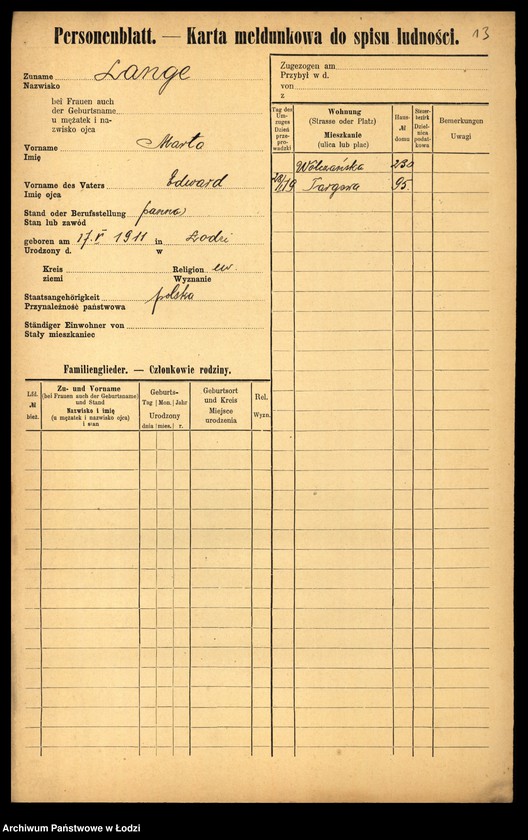 Personenblatt. — Karta meldunkowa do spisu ludności.
13
Zuname Lange
Nazwisko
bei Frauen auch
der Geburtsname
u mężatek i na-
zwisko ojca
Vorname Marta
Imię
Vorname des Vaters Edward
Imię ojca
Stand oder Berufsstellung panna
Stan lub zawód
geboren am 17. V 1911 in Łodzi
Urodzony d. w
Kreis Religion ew.
ziemi Wyznanie
Staatsangehörigkeit polska
Przynależność państwowa
Ständiger Einwohner von
Stały mieszkaniec
Familienglieder. — Członkowie rodziny.
Lfd. № bież.
Zu- und Vorname
(bei Frauen auch der Geburtsname)
und Stand
Nazwisko i imię
(u mężatek i nazwisko ojca)
i stan
Geburts-
Tag Mon. Jahr
Urodzony
dnia mies. r.
Geburtsort
und Kreis
Miejsce
urodzenia
Rel.
Wyzn.
Zugezogen am
Przybył w d.
von
z
Tag des
Um-
zuges
Dzień
prze-
prowadzki
Wohnung
(Strasse oder Platz)
Mieszkanie
(ulica lub plac)
Haus-
№
domu
Steuer-
bezirk
Dziel-
nica
podat-
kowa
Bemerkungen
Uwagi
Wólczańska 230
Targowa 95.
Archiwum Państwowe w Łodzi